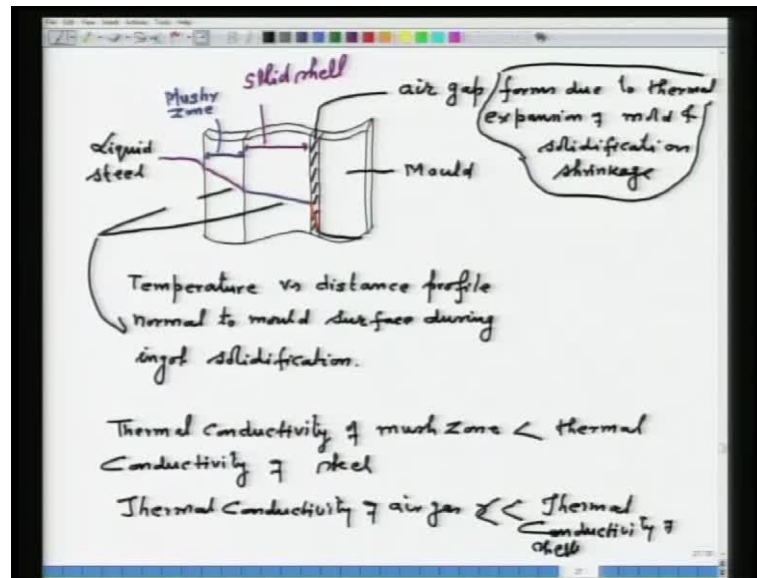 Solid shell
Mushy
zone
Liquid
steel
air gap
forms due to thermal
expansion of mold &
solidification
shrinkage
Mould
Temperature vs distance profile
normal to mould surface during
ingot solidification.
Thermal conductivity of mush zone < thermal
Conductivity of steel
Thermal Conductivity of air gas << Thermal
Conductivity of